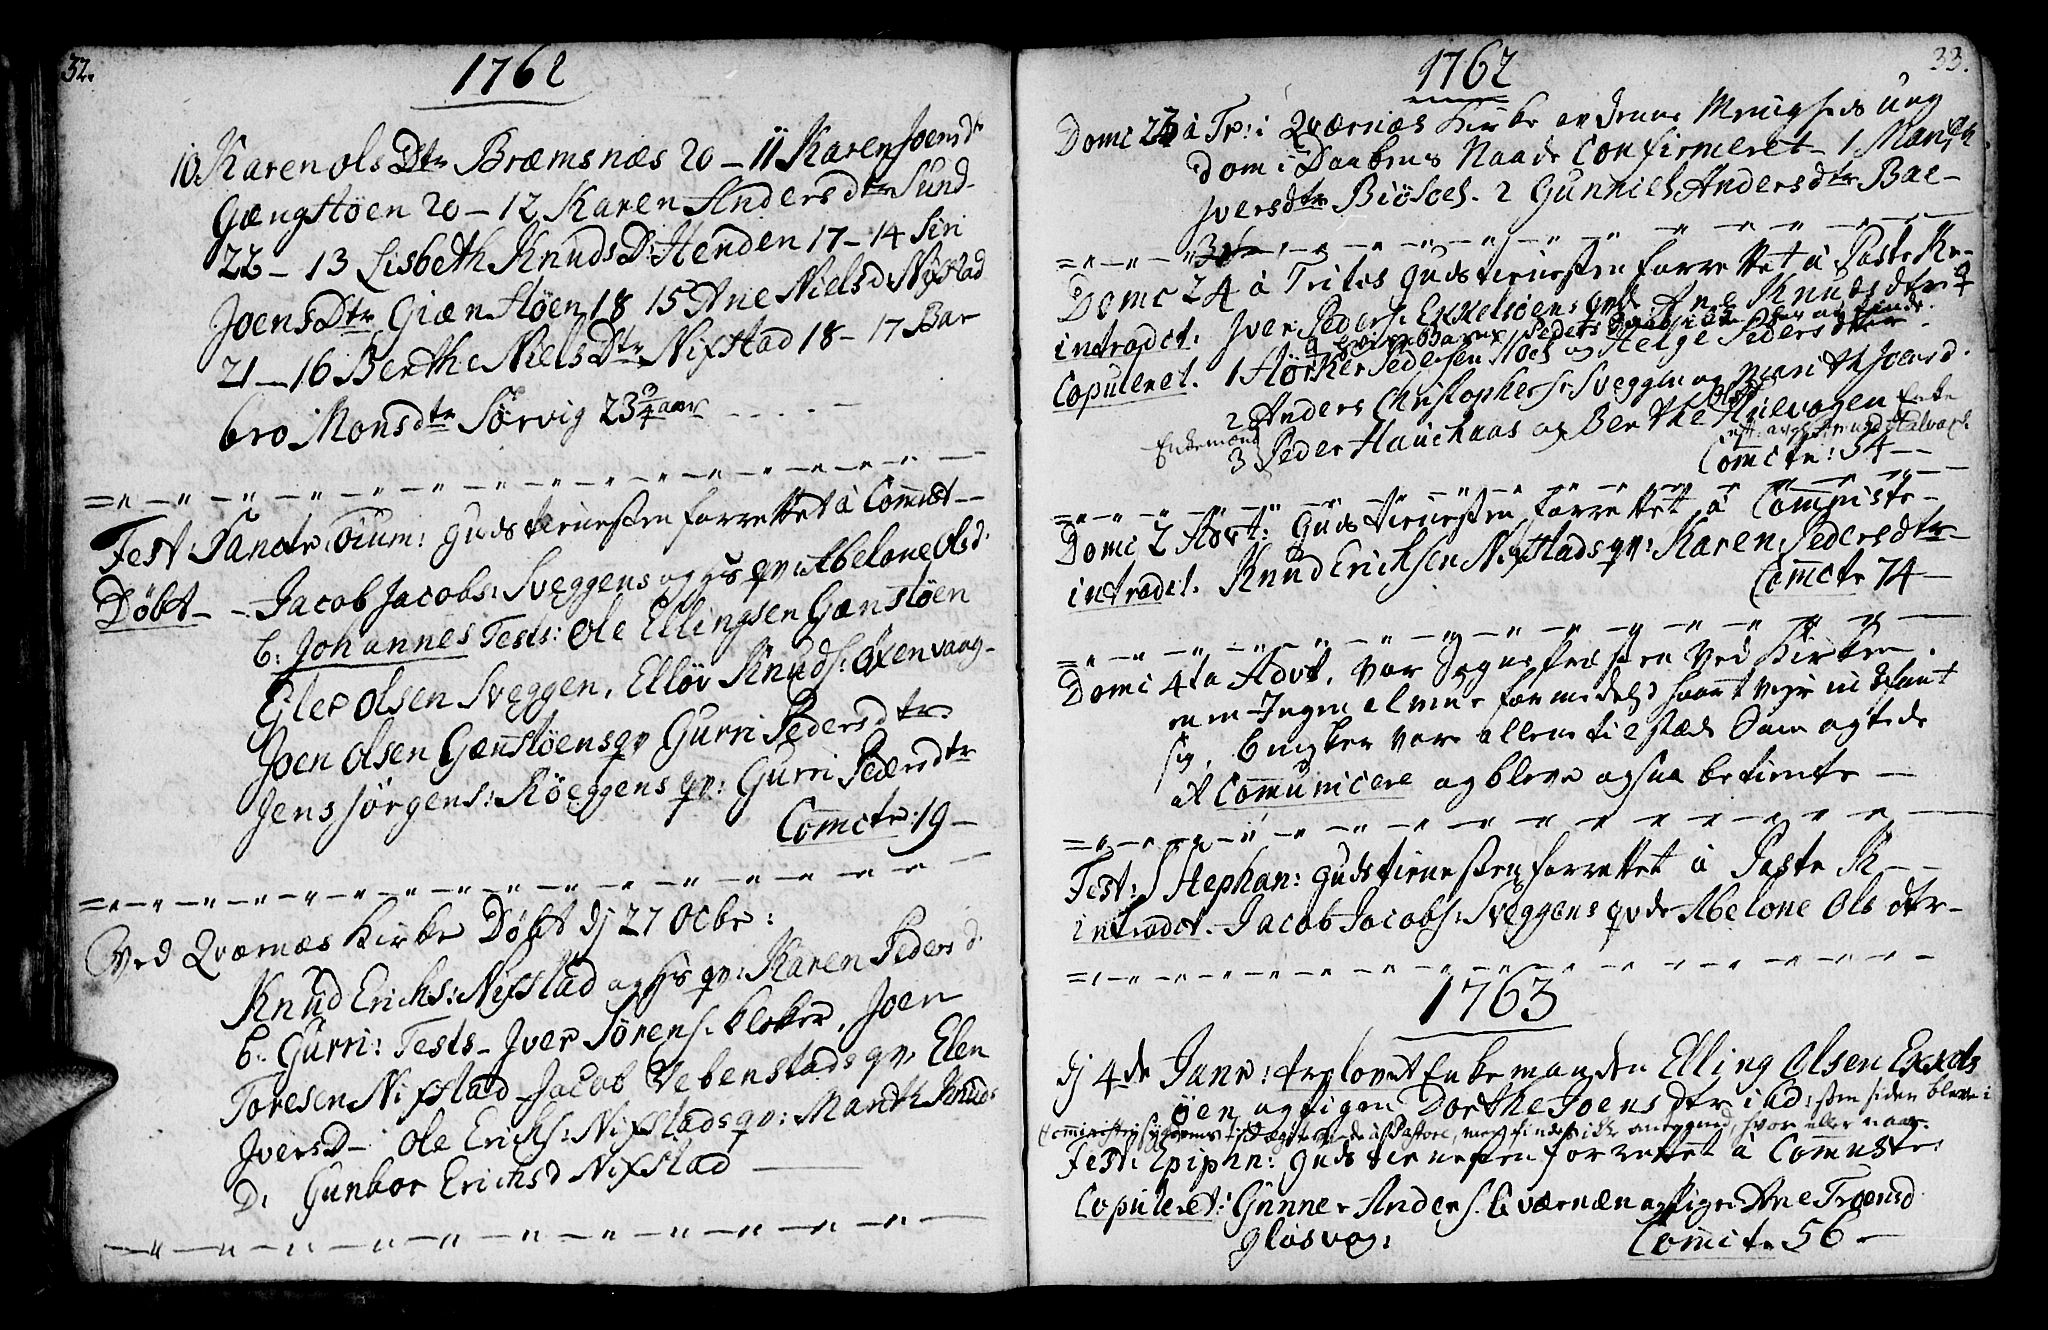 32.
1762
10 Karen Ols Dtr Bræmsnæs 20 - 11 Karen Joensdr
Gængstöen 20 - 12 Karen Andersdtr Sund-
22 - 13 Lisbeth Knuds D: Henden 17 - 14 Siri
Joens Dtr Giænstöen 18 15 Ane Niels D Nixstad
21 - 16 Berthe Niels Dtr Nixstad 18 - 17 Bar
bro Monsdtr Sörvig 23 3/4 aar
Fest: Sanctr. Oium: Gudstienesten forrettet å Comst
Döbt - Jacob Jacobs: Sveggens og hs qv: Abelone Olsd.
b: Johannes Tests: Ole Ellingsen Gænstöen
Ejler Olsen Sveggen, Ellöv Knuds: Oxenvaag-
Joen Olsen Gænstöens qv Gurri Pedersdtr
Jens Jörgens: Röeggens qv: Gurri Pedersdtr
Comcte: 19 -
Ved Qværnæs Kirke Döbt dj 27 Ocbr:
Knud Erichs: Nixstad og hs qv: Karen Pedersd.
b. Gurri: Tests - Iver Sörens. klokker, Joen
Toresen Nixstad Jacob Vebenstads qv. Elen
Iversd - Ole Erichs: Nixstads qv: Marith Knuds
D. Gunbor Erichsd Nixstad
33.
1762
Domc 23 å Tr: i Qværnæs Kirke av denne Menigheds ung
dom i Daabens Naade Confirmeret 1 Marith
Iversdtr Biösoel. 2 Gunnild Andersdtr Bae-
Domc 24 å Trites Gudstienesten forrettet å Qvste K-
introdct. Iver Peders. Exxelsöens qvde Ane Knudsdtr
Copuleret. 1 Störker Pedersen Moen og Helge Pedersdtr
2 Anders Christophers: Sveggen og Marith Joensd.
Enkemand 3 Peder Hauchaas og Berthe Ols Kulvogen Enke
Comcte: 54 -
Domc 2 Advt: Gudstienesten forrettet å Comniste-
introdct. Knud Erichsen Nixstads qv: Karen Pedersdtr-
Comcte 74 -
Domc 4ta Advt. var Sognepresten ved Kirken.
men Ingen almue formedelst haart veir indfant
sig,
at Communicere og bleve ogsaa betiente -
Fest: Stephan: Gudstienesten forrettet å Qvste K--
introdct. Jacob Jacobs: Sveggens qvde Abelone Ols dtr-
1763
dj 4de Janr: trolovet Enkemanden Elling Olsen Exxels
öen og pigen Dorthe Joens dtr ibd:
Fest: Epiphn: Gudstienesten forrettet å Comnste:
Copuleret: Gunner Anders. Qværnæs og pige Ane Troensd
Glosvog:
Comcte 56 -